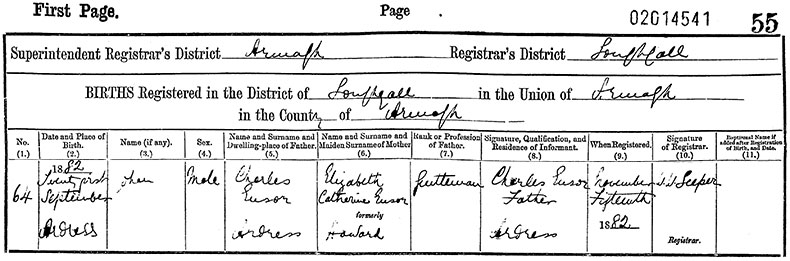 First Page. Page 02014541 55
Superintendent Registrar's District Armagh Registrar's District Loughgall
BIRTHS Registered in the District of Loughgall in the Union of Armagh
in the County of Armagh
No. Date and Place of Birth. Name (if any). Sex. Name and Surname and Dwelling-place of Father. Name and Surname and Maiden Surname of Mother Rank or Profession of Father. Signature, Qualification, and Residence of Informant. When Registered. Signature of Registrar. Baptismal Name if added after Registration of Birth, and Date.
(1.) (2.) (3.) (4.) (5.) (6.) (7.) (8.) (9.) (10.) (11.)
1882
Twenty first John Male Charles Elizabeth Gentleman Charles Ensor November Leeper
64 September Ensor Catherine Ensor Father Fifteenth
formerly
Ardress Ardress Howard Ardress 1882 Registrar.